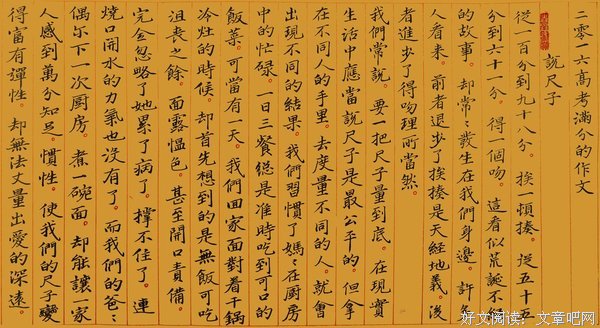 二零一六高考滿分的作文
說尺子
從一百分到九十八分。挨一頓揍。從五十五
分到六十一分。得一個吻。這看似荒誕不經
的故事。却常々發生在我們身邊。許多
人看來。前者退步了挨揍是天經地義。後
者進步了得吻理所當然。
我們常說。要一把尺子量到底。在現實
生活中應當說尺子是最公平的。但拿
在不同人的手里。去度量不同的人。就會
出現不同的結果。我們習慣了媽々在厨房
中的忙碌。一日三餐總是准時吃到可口的
飯菜。可當有一天。我們回家面對着干鍋
冷灶的時候。却首先想到的是無飯可吃
沮喪之餘。面露愠色。甚至開口責備。
完全忽略了她累了病了。撑不住了。連
燒口開水的力氣也沒有了。而我們的爸々
偶尔下一次厨房。煮一碗面。却能讓一家
人感到萬分知足。慣性。使我們的尺子變
得富有彈性。却無法丈量出愛的深遠。
好文阅读：文章吧网